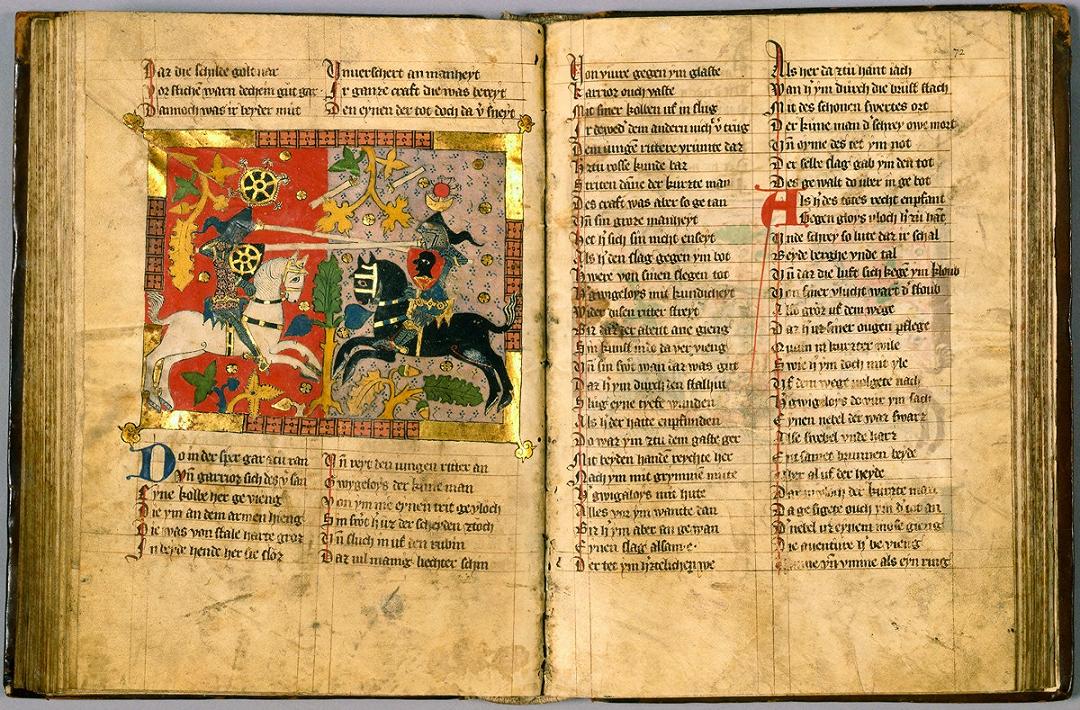 Daz die schilde golt var
Vor stiche warn dechein gut gar
Dannoch was ir beyder mut
Vnuerschert an manheyt
Ir ganze craft die was bereyt
Den eynen der tot doch da v̾sneyt
Do in der sper gar zcu ran
Vn̄ garrioz sich des v̾san
Eyne kolbe her ge vieng
Die ym an dem armen hieng
Die was von stale harte groz
In beyde hende her sie sloz
Vn̄ reyt den iungen ritter an
Gwygeloys der kune man
Von ym me eynen trit ge vloch
Sin swt h̾ uz der scheyden zcoch
Vn̄ sluch in uf den rubin
Daz vil manig liechter schin
72
Von vure gegen ym glaste
Karrioz ouch vaste
Mit siner kolben uf in slug
Ir dewed̾ dem andern nich v̾trug
Dem iungen rittere
Striten
der kurze man
Des craft was aber so ge tan
Vn̄ sin groze manheyt
Het h̾ sich sin nicht
Als h̾ den slag gegen ym bot
H̾ were von sinen slegen tot
H̾ gwigeloys mit kundicheyt
Wider disen ritter streyt
Biz daz der abent ane gieng
Sin kunst
Vn̄ sin swt wan daz was gut
Daz h̾ ym durch den stalhut
Slug eyne tyefe wunden
Als h̾ der hatte enpfunden
Do waz ym zcu dem gaste ger
Mit beyden handē reychte her
Nach ym mit grymme mute
H̾ gwigaloys mit hute
Alles vor ym wante dan
Biz h̾ ym aber an ge wan
Eynen slag alsam e
Der tet ym h̾tzelichen we
Als her da zcu hant iach
Wan h̾ ym durch die brust stach
Mit des schonen swertes ort
Der kune man d̾ schrey owe mort
Vn̄ oyme des tet ym not
Der selbe slag gab ym den tot
Des ge walt do uber in ge bot
Als h̾ des todes recht enpfant
Gegen gloys vloch h̾ zcu hāt
Vnde schrey so lute daz ir schal
Beyde berghe vnde tal
Vn̄ daz die luft sich kegē ym
Von siner vlucht wart d̾ stoub
Also groz uf dem wege
Daz h̾ uz siner ougen pflege
Quam in kurzer wile
Swie h̾ ym doch mit yle
Vf dem wege volgete nach
H̾ gwigeloys do vor ym sach
Eynen nebel der waz swarz
Alse swebel vnde harz
Ent samet brunnen beyde
Vber al uf der heyde
der kurze man
Da ge sigete ouch ym d̾ tot an
D̾ nebel uz eynem mose gieng
Die auentiure
vn̄ vmme als eyn ring